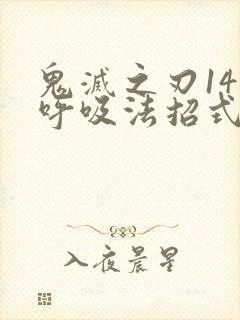 鬼滅之刃14
呼吸法招式
入夜晨星